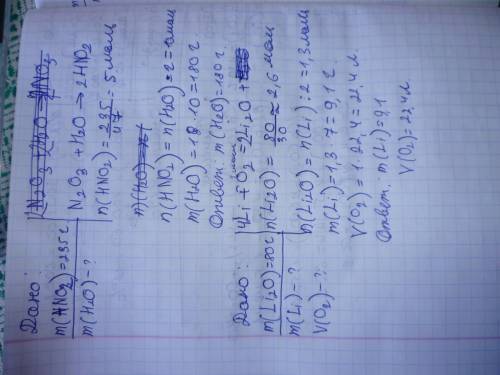 Дано:
m(HNO2)=235г
m(H2O)-?
N2O3+H2O→2HNO2
n(HNO2)=235/47=5моль
n(HNO2)=n(H2O)*2=10моль
m(H2O)=18·10=180г
Ответ: m(H2O)=180г
Дано:
m(Li2O)=80г
m(Li)-?
V(O2)-?
4Li+O2=2Li2O
n(Li2O)=80/30≈2,6моль
n(Li2O)=n(Li):2=1,3моль
m(Li)=1,3·7=9,1г
V(O2)=1·22,4=22,4л
Ответ: m(Li)=9,1
V(O2)=22,4л.